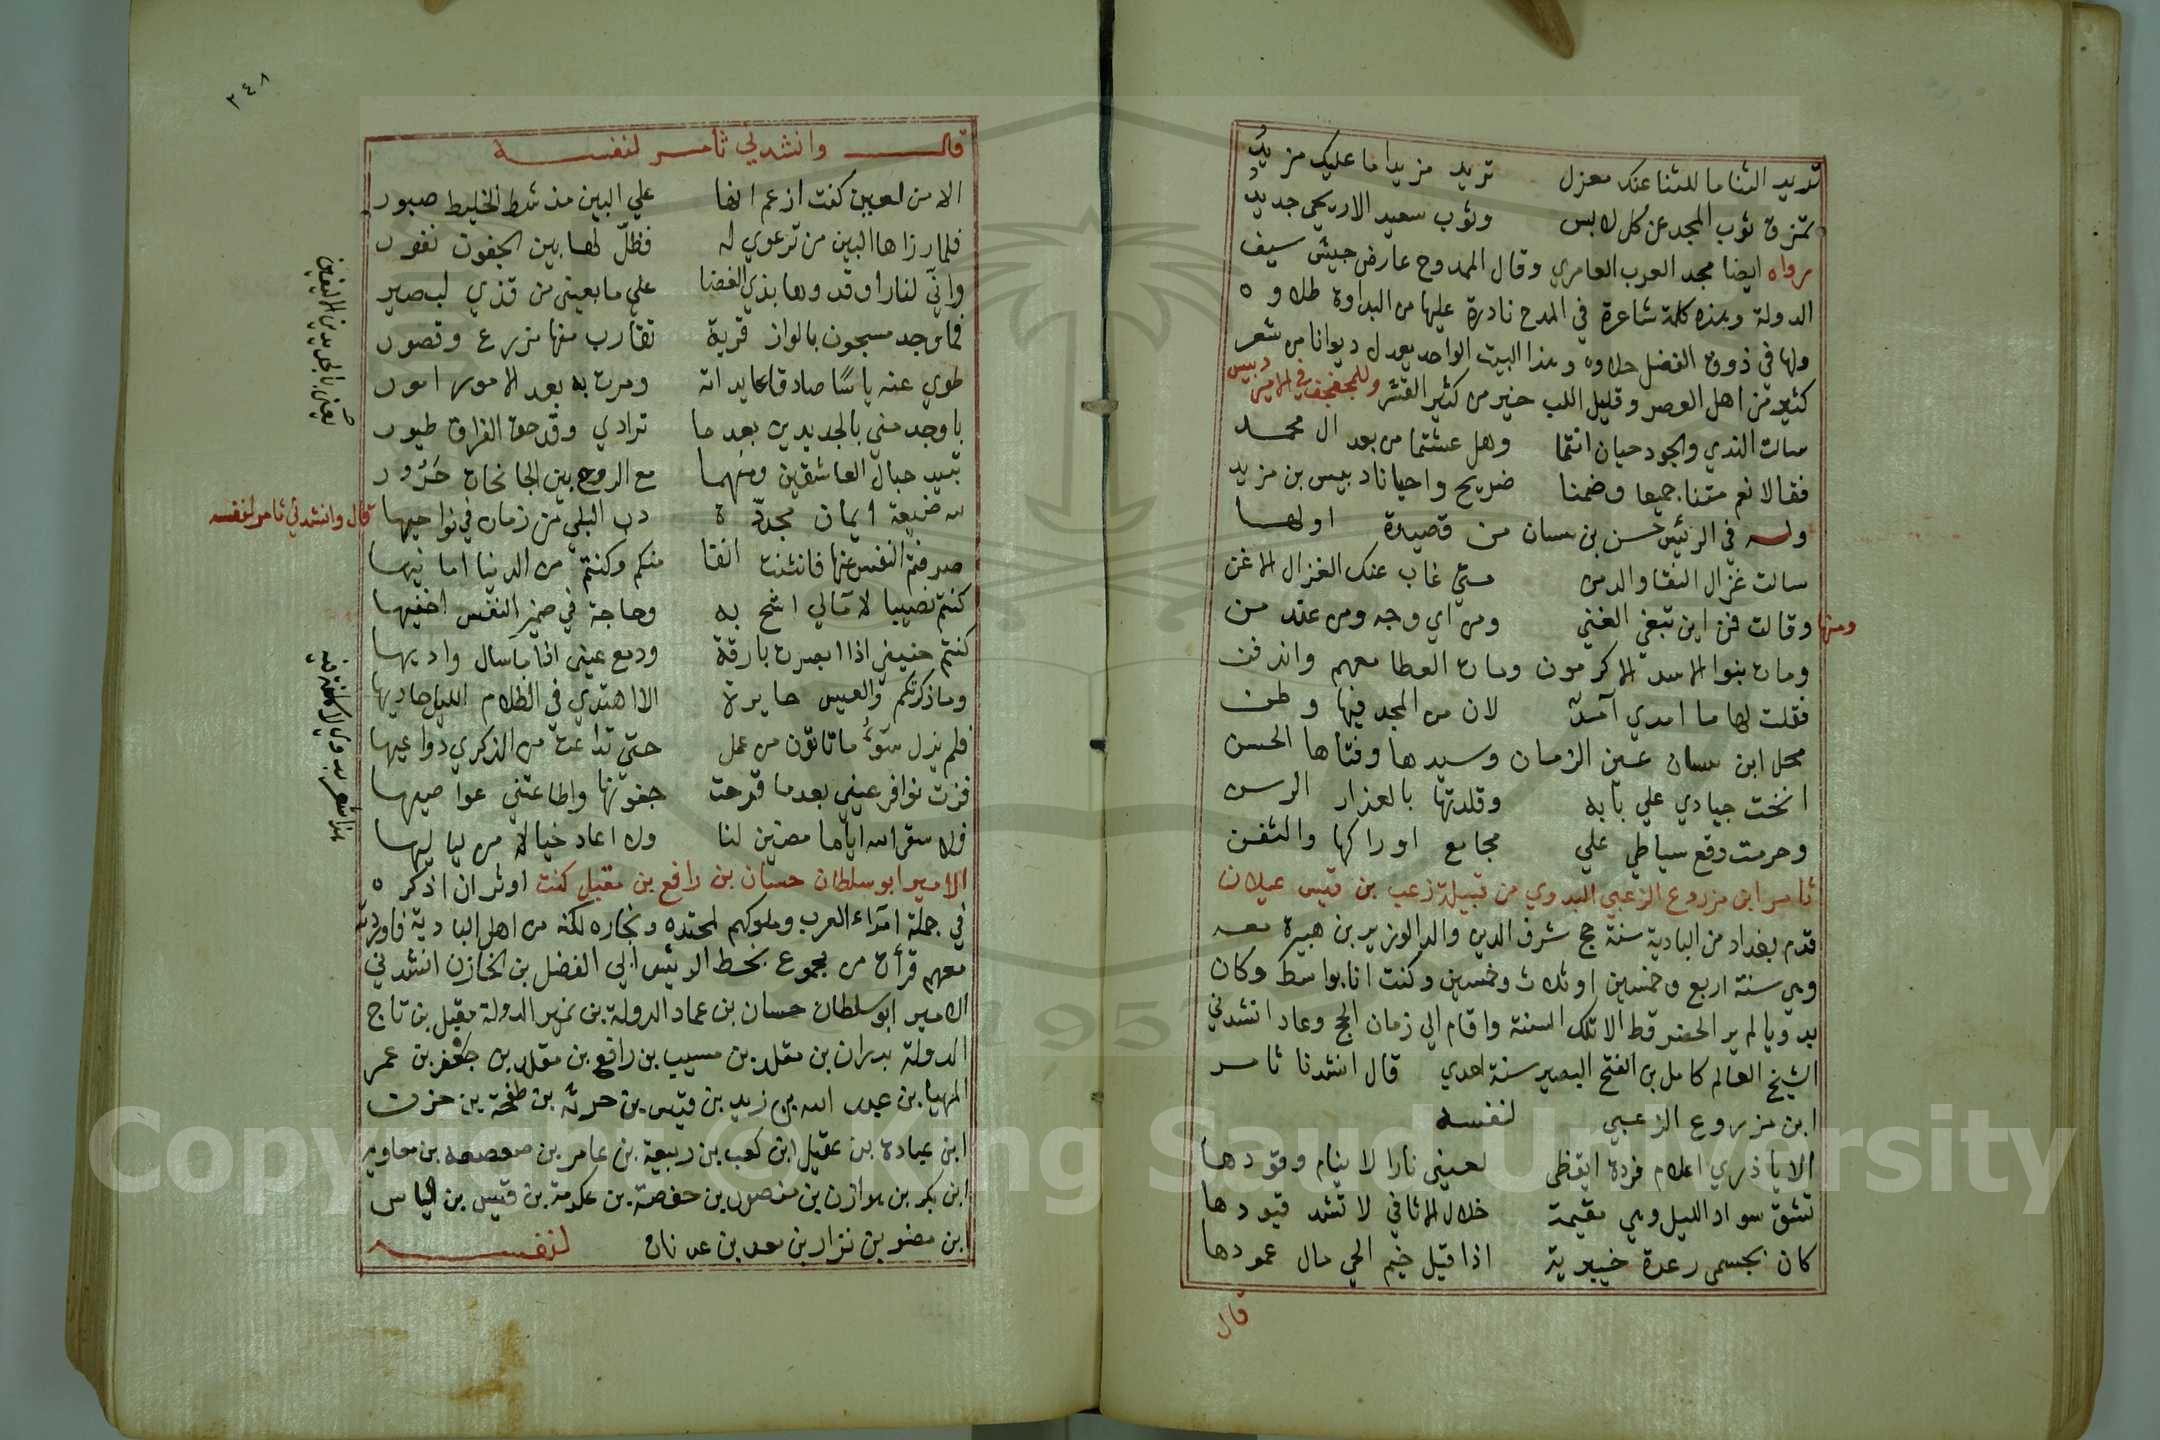 تريد الثنا ما للثنا عنك معزل تريد مزيدا ما عليك مزيدُ
تمزق ثوب المجد عن كل لابس وثوب سعيد الاريحي جديدُ
رواه ايضا مجد العرب العامري وقال الممدوح عارض جيش سيف
الدولة وهذه كلمة شاعرة في المدح نادرة عليها من البداوة طلاوه
ولها في ذوق الفضل حلاوه وهذا البيت الواحد يعدل ديوانا من شعر
كثير من اهل العصر وقليل اللب خير من كثير القشر وللجفجف في الامير دبيس
سالت الندي والجود حيان انتما وهل عشتما من بعد ال محمد
فقالا نعم متنا جميعا وضمنا ضريح واحيانا دبيس بن مزيد
وله في الرئيس حسن بن سان من قصيدة اولها
سالت غزال النقا والدمن متي غاب عنك الغزال الاغن
ومنها وقالت فمن اين تبغي الغني ومن اي وجه ومن عند من
ومات بنوا الاسد الاكرمون ومات العطا معهم واندفن
فقلت لها ما امدي آمدٌ لان من المجد فيها وطن
محل ابن سان عين الزمان وسيدها وفتاها الحسن
انخت جيادي علي بابه وقلدتها بالعذار الرسن
وحرمت وقع سياطي علي مجامع اوراكها والثفن
ثامر ابن مزروع الزعبي البدوي من قبيلة زعب بن قيس عيلان
قدم بغداد من البادية سنة حج شرف الدين والد الوزير بن هبيرة معه
وهي سنة اربع وخمسين او ثلاث وخمسين وكنت انا بواسط وكان
بدويا لم ير الحضر قط الا تلك السنة واقام الي زمان الحج وعاد انشدني
الشيخ العالم كامل بن الفتح البصير سنة احدي قال انشدنا ثامر
ابن مزروع الزعبي لنفسه
الا يا ذري اعلام فردة ايقظي لعيني نارا لا ينام وقودها
تشق سواد الليل وهي مقيمة خلال الاثافي لا تشد قيودها
كان بجسمي رعدة خيبرية اذا قيل خيم الحي مال عمودها
قال
٢٤٨
قال وانشدني ثامر لنفسه
الا من لعين كنت ازعم انها علي البين مذ شط الخليط صبور
فلما رزاها البين من ترعوي له فظلّ لها بين الجفون نفور
واني لنار اوقدوها بذي الغضا علي ما بعيني من قذي لبصير
فما وجد مسجون بالواز قرية تقارب منها مزرع وقصور
طوي عنه ياسًا صادقا عايداته ومرت به بعد الامور امور
باوجد مني بالجديدين بعد ما ترادي وقد حق الفراق طيور
يعني بالجديدين اليقين
تبيد حبال العاشقين ومنهما مع الروح بين الجانحات حَزُور
قال وانشدني ثامر لنفسه
لله ضيعة ايمان مجددّة دب البلي من زمان في نواحيها
صدفتم النفس عنها فانثنت انفا منكم وكنتم من الدنيا امانيها
كنتم نصيبا لامالي اشح به وحاجة في ضمير النفس اخفيها
كنتم حنيني اذا ابصرت بارقة ودمع عيني اذا ما سال واديها
وما ذكرتكم والعيس حايرة الا اهتدي في الظلام الليل حاديها
فلم يزل سَوُءُ ما تاتون من عمل حتي تداعت من الذكري دواعيها
قرت نوافر عيني بعد ما قرحت جفونها واطاعتني عواصيها
فلا سقي الله اياما مضين لنا ولا اعاد خيالا من لياليها
الامير ابو سلطان حسان بن رافع بن مقبل كنت اوثر ان اذكره
في جملة امراء العرب وملوكهم لمحتده ونجاره لكنه من اهل البادية فاوردته
معهم قرأت من مجموع بخط الرئيس ابي الفضل بن الخازن انشدني
الامير ابو سلطان حسان بن عماد الدولة بن نهير الدولة مقبل بن تاج
الدولة بدران بن مقلد بن مسيب بن رافع بن مقلد بن جعفر بن عمر
المهيا بن عبد الله بن زيد بن قيس بن حرثه بن طفحة بن حزن
ابن عبادة بن عقيل ابن كعب بن ربيعة بن عامر بن صعصعه بن معاويه
ابن بكر بن هوازن بن منصور بن حفصة بن عكرمة بن قيس بن الياس
ابن مضر بن نزار بن معد بن عدنان لنفسه
Copyright © King Saud University
1957